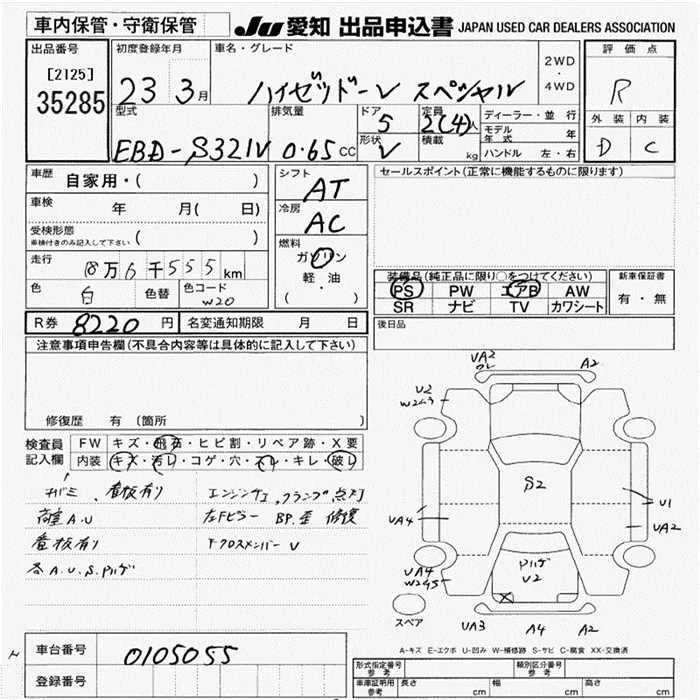 車内保管・守衛保管 JU 愛知 出品申込書 JAPAN USED CAR DEALERS ASSOCIATION
出品番号 初度登録年月 車名・グレード 評価点
[2125] 23 3月 ハイゼットカーゴ スペシャル 2WD・4WD R
35285
型式 排気量 ドア 定員 ディーラー・並行 外装 内装
EBD-S321V 0.65 CC 5 2(4)人 モデル年式 年 D C
形状 V 積載 kg ハンドル 左・右
車歴 自家用・( ) シフト AT セールスポイント(正常に機能するものに限ります)
車検 年 月( 日) 冷房 AC
受検形態 ( )
車検付きのみ記入して下さい
燃料 ガソリン
走行 18万6千555km 軽・油
(・)
装備品(純正品に限り○をつけてください) 新車保証書
色 白 色替 色コード W20 PS PW エアB AW 有・無
SR ナビ TV カワシート
R券 8220 円 名変通知期限 月 日 後日品
注意事項申告欄(不具合内容等は具体的に記入して下さい)
修復歴 有 〔箇所 〕
検査員記入欄 FW キズ・飛石・ヒビ割・リペア跡・X要
内装 キズ・汚し・コゲ・穴・スレ・キレ・破し
看板有り エンジンチェックランプ点灯
荷室A.U 左Fピラー BP.歪 修復
看板有り Fクロスメンバー V
各A.U.S.Pハゲ
UA2 A2
U2
W2 S2
U1
UA4 UA2
Pハゲ
U2
UA4
W2
スペア UA3 A4 A2
A-キズ E-エクボ U-凹み W-補修跡 S-サビ C-腐食 XX-交換済
車台番号 0105055
登録番号
形式指定番号 参考 類別区分番号 参考
車庫証明用 参考 長さ cm 幅 cm 高さ cm